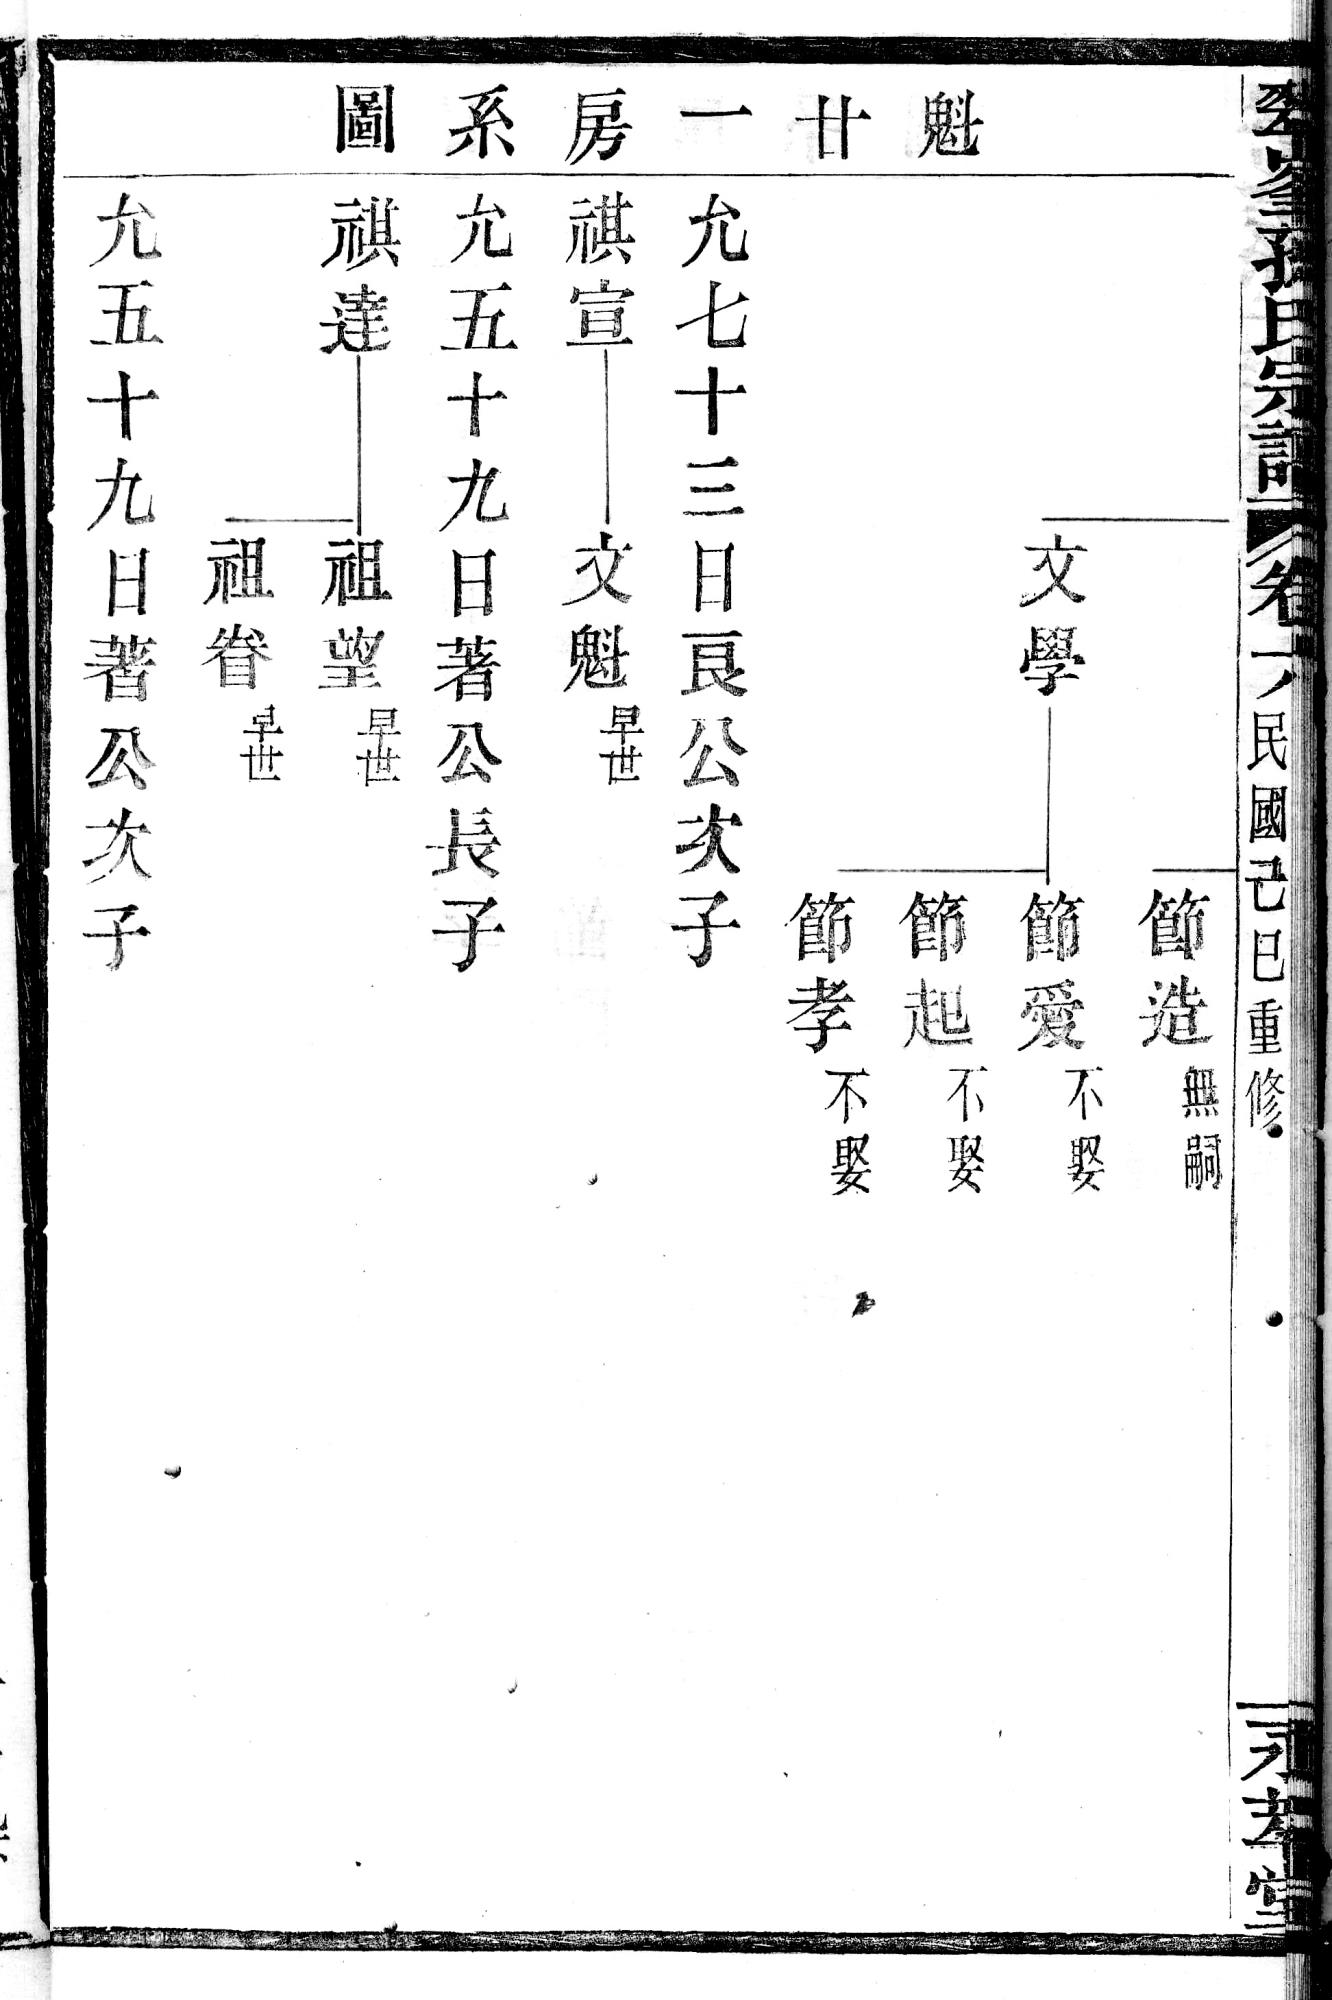 魁廿一房系圖
節造無嗣
文學
節愛不娶
節起不娶
節孝不娶
允七十三日良公次子
祺宣
文魁早世
允五十九日著公長子
祺達
祖望早世
祖眷早世
允五十九日著公次子
孫氏宗譜
卷
民國己巳重修
永孝堂